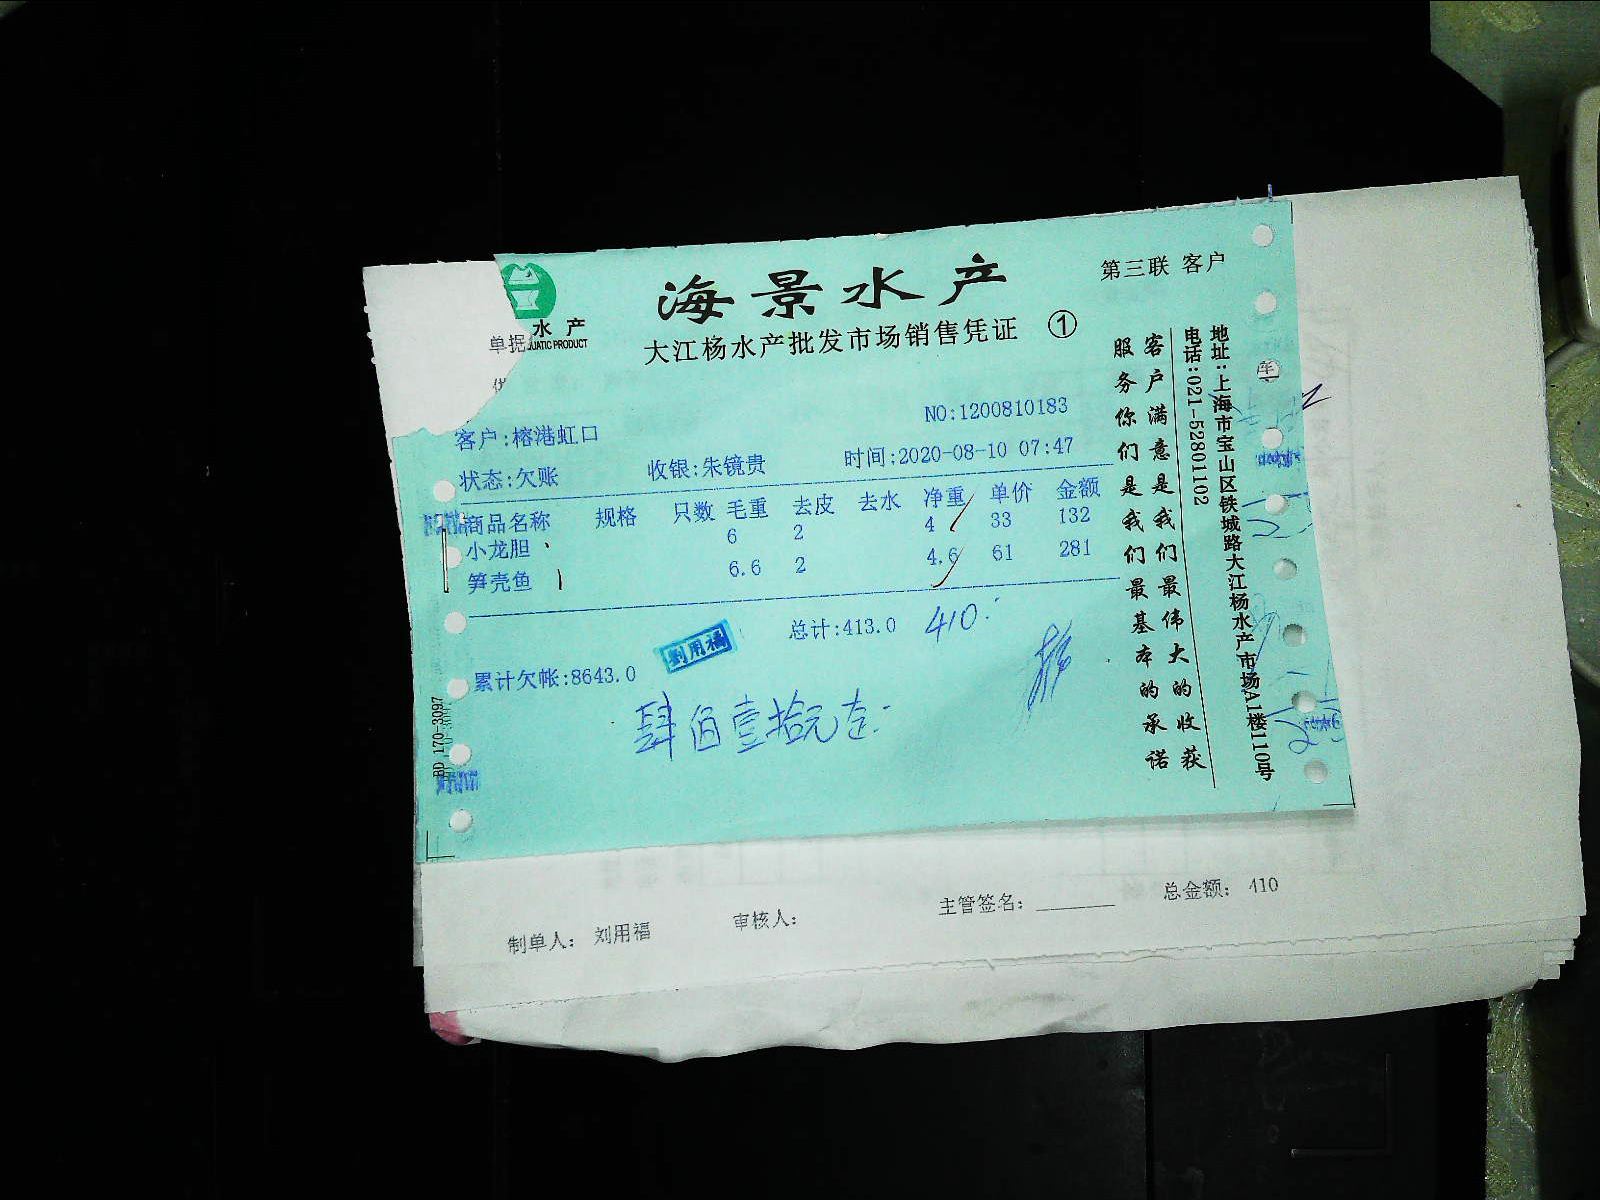 水产
UATIC PRODUCT
单据
海景水产
第三联 客户
大江杨水产批发市场销售凭证 ①
NO:1200810183
客户:榕港虹口
状态:欠账 收银:朱镜贵 时间:2020-08-10 07:47
商品名称 规格 只数 毛重 去皮 去水 净重 单价 金额
小龙胆 6 2 4 33 132
笋壳鱼 6.6 2 4.6 61 281
总计:413.0 410
劉用福
累计欠帐:8643.0
肆佰壹拾元
客户满意是我们最伟大的收获
服务你们是我们最基本的承诺
地址:上海市宝山区铁城路大江杨水产市场A1楼110号
电话:021-52801102
BD 170-3097
制单人: 刘用福 审核人: 主管签名: 总金额: 410